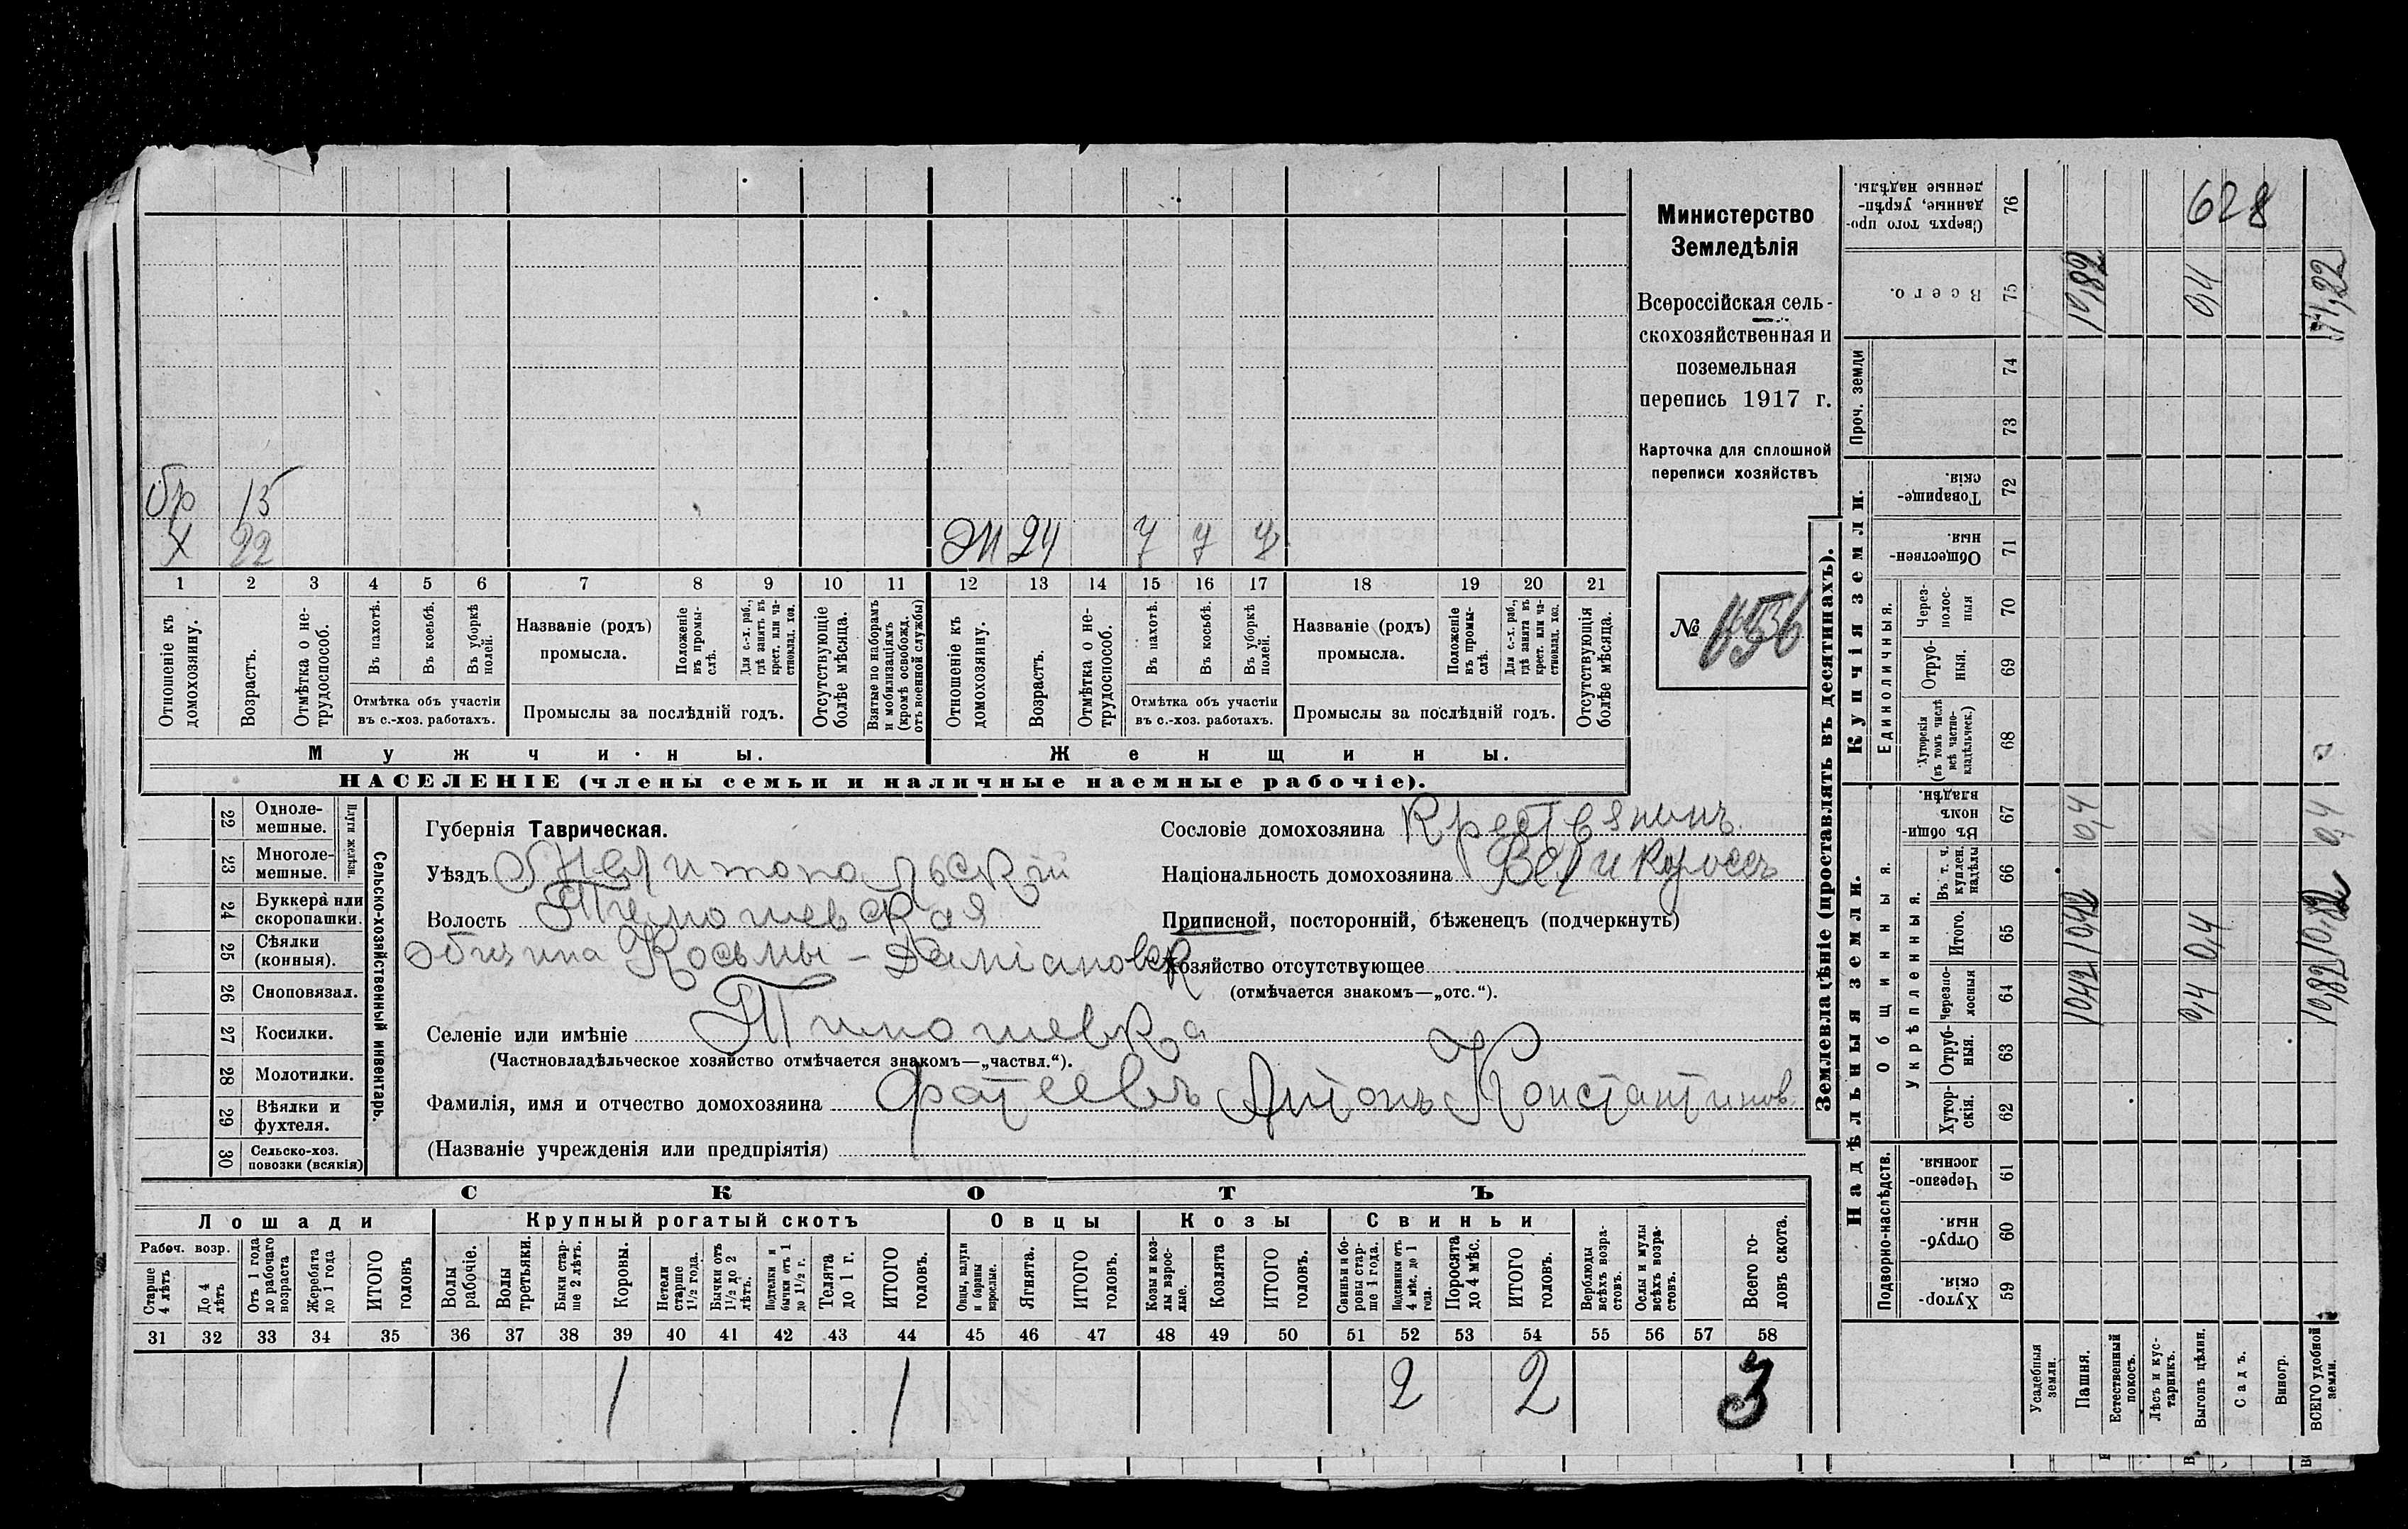 Министерство
Земледѣлія
Всероссійская сель-
скохозяйственная и
поземельная
перепись 1917 г.
Карточка для сплошной
переписи хозяйствъ
№ 656
628
бр 15
х 22
24
1 2 3 4 5 6 7 8 9 10 11 12 13 14 15 16 17 18 19 20 21
Отношеніе къ домохозяину.
Возрастъ.
Отмѣтка о не-трудоспособ.
Въ пахотѣ.
Въ косьбѣ.
Въ уборкѣ полей.
Отмѣтка объ участіи въ с.-хоз. работахъ.
Названіе (родъ) промысла.
Положеніе въ промы-слѣ.
Для с.-х. раб., гдѣ занятъ въ крест. или ча-стновлад. хоз.
Промыслы за послѣдній годъ.
Отсутствующіе болѣе мѣсяца.
Взятые по наборамъ и мобилизаціямъ (кромѣ освобожд. отъ военной службы)
Отношеніе къ домохозяину.
Возрастъ.
Отмѣтка о не-трудоспособ.
Въ пахотѣ.
Въ косьбѣ.
Въ уборкѣ полей.
Отмѣтка объ участіи въ с.-хоз. работахъ.
Названіе (родъ) промысла.
Положеніе въ промы-слѣ.
Для с.-х. раб., гдѣ занята въ крест. или ча-стновлад. хоз.
Промыслы за послѣдній годъ.
Отсутствующія болѣе мѣсяца.
Мужчины. Женщины.
НАСЕЛЕНІЕ (члены семьи и наличные наемные рабочіе).
Сельско-хозяйственный инвентарь.
Плуги желѣзн.
22 Одноле-мешные.
23 Многоле-мешные.
24 Буккера или скоропашки.
25 Сѣялки (конныя).
26 Сноповязал.
27 Косилки.
28 Молотилки.
29 Вѣялки и фухтеля.
30 Сельско-хоз. повозки (всякія)
Губернія Таврическая.
Уѣздъ Мелитопольскій
Волость Тимошевская
община Косьмы-Даміановск
Сословіе домохозяина Крестьянинъ
Національность домохозяина Великороссъ
Приписной, посторонній, бѣженецъ (подчеркнуть)
Хозяйство отсутствующее
(отмѣчается знакомъ—„отс.“).
Селеніе или имѣніе Тимошевка
(Частновладѣльческое хозяйство отмѣчается знакомъ—„частвл.“).
Фамилія, имя и отчество домохозяина Фатеевъ Антонъ Константинов
(Названіе учрежденія или предпріятія)
СКОТЪ
Лошади Крупный рогатый скотъ Овцы Козы Свиньи
Рабоч. возр.
Старше 4 лѣтъ
До 4 лѣтъ
Отъ 1 года до рабочаго возраста
Жеребята до 1 года
ИТОГО головъ
Волы рабочіе.
Волы третьяки.
Быки стар-ше 2 лѣтъ.
Коровы.
Нетели старше 1 1/2 года.
Бычки отъ 1 1/2 до 2 лѣтъ.
Подтелки и бычки отъ 1 до 1 1/2 г.
Телята до 1 г.
ИТОГО головъ.
Овцы, валухи и бараны взрослые.
Ягнята.
ИТОГО головъ.
Козы и коз-лы взрос-лые.
Козлята
ИТОГО головъ.
Свиньи и бо-ровы стар-ше 1 года.
Подсвинки отъ 4 мѣс. до 1 года.
Поросята до 4 мѣс.
ИТОГО головъ.
Верблюды всѣхъ возра-стовъ.
Ослы и мулы всѣхъ возра-стовъ.
Всего го-ловъ скота.
31 32 33 34 35 36 37 38 39 40 41 42 43 44 45 46 47 48 49 50 51 52 53 54 55 56 57 58
1 1 2 2 3
Землевладѣніе (проставлять въ десятинахъ).
Надѣльныя земли. Купчія земли. Проч. земли
Подворно-наслѣдств.
Общинныя.
Укрѣпленныя.
Единоличныя.
Хутор-скія. 59
Отруб-ныя. 60
Черезпо-лосныя. 61
Хутор-скія. 62
Отруб-ныя. 63
Черезпо-лосныя 64
Итого. 65
Въ т. ч. куплен. надѣлы 66
Въ общин-номъ владѣн. 67
Хуторскія (въ томъ числѣ всѣ частно-владѣльческ.) 68
Отруб-ныя. 69
Через-полос-ныя 70
Обществен-ныя 71
Товарище-скія. 72
73
74
Всего. 75
Сверхъ того про-данные, укрѣп-ленные надѣлы. 76
Усадебныя земли.
Пашня. 10,42 10,42 0,4 10,82
Естественный покосъ.
Лѣсъ и кус-тарникъ.
Выгонъ цѣлин. 0,4 0,4 0,4
Садъ.
Виногр.
ВСЕГО удобной земли. 10,82 10,82 0,4 11,22